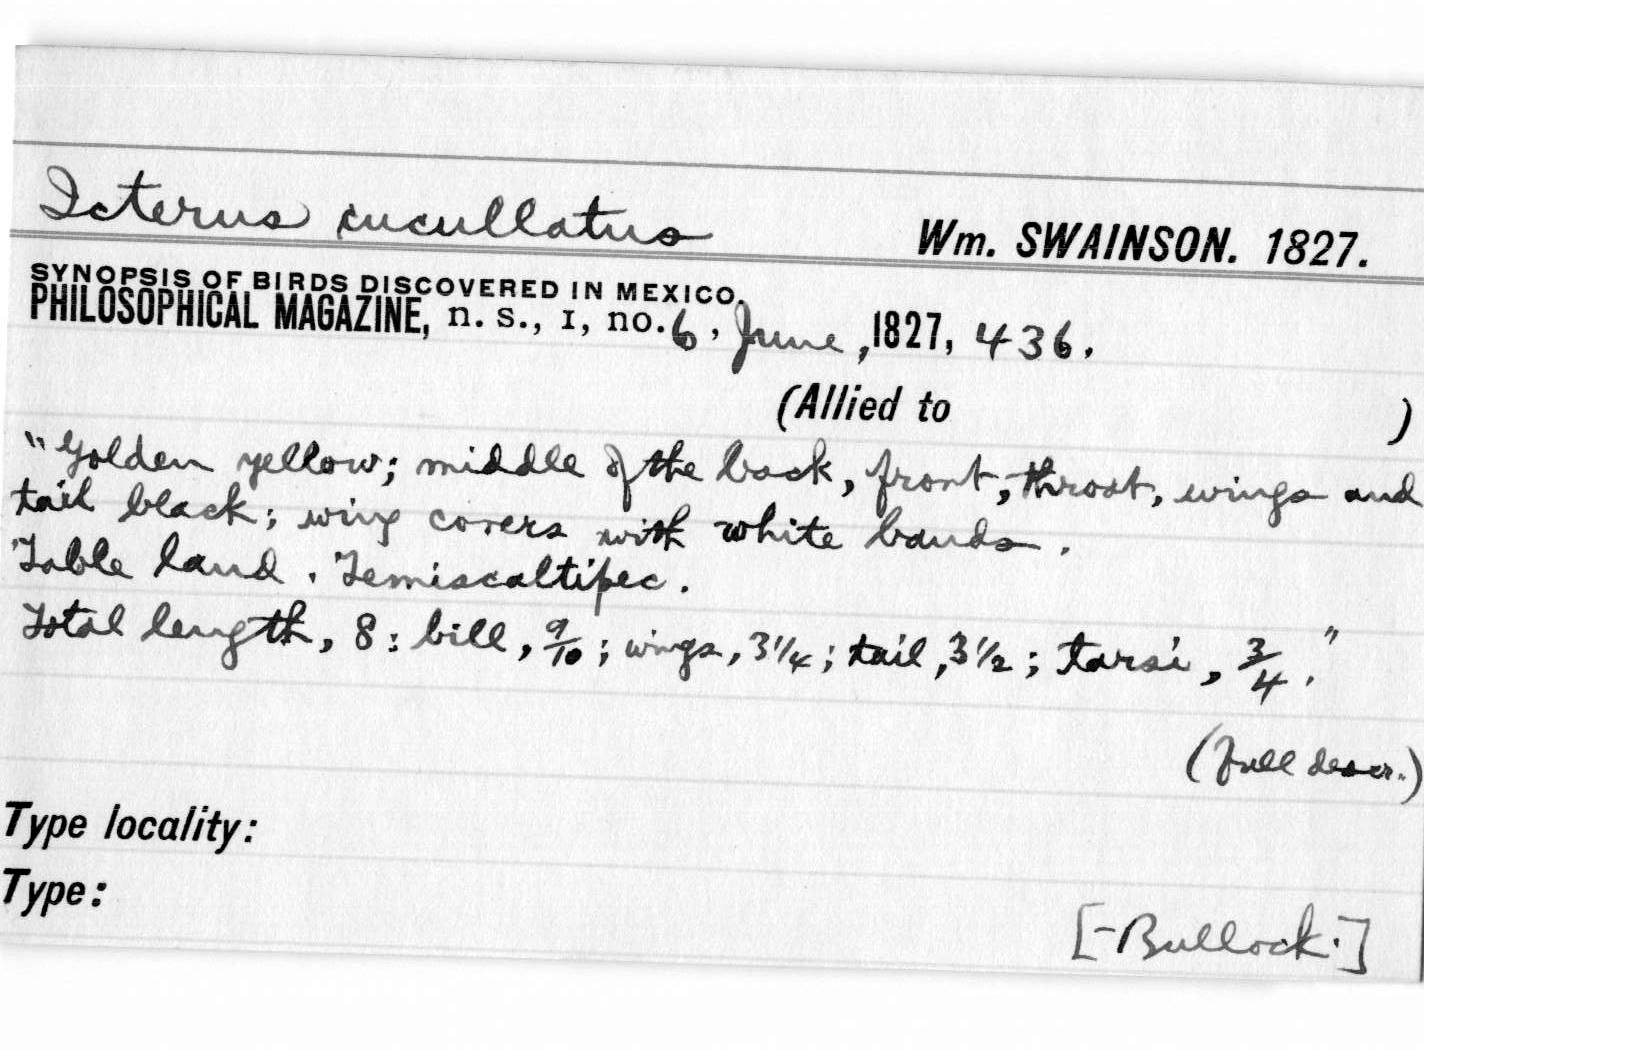 Icterus cucullatus Wm. SWAINSON. 1827.
SYNOPSIS OF BIRDS DISCOVERED IN MEXICO.
PHILOSOPHICAL MAGAZINE, n. s., I, no. 6, June, 1827, 436.
(Allied to )
"Golden yellow; middle of the back, front, throat, wings and
tail black; wing covers with white bands.
Table land. Temiscaltipec.
Total length, 8: bill, 9/10; wings, 3 1/4; tail, 3 1/2; tarsi, 3/4."
(full descr.)
Type locality:
Type:
[-Bullock.]